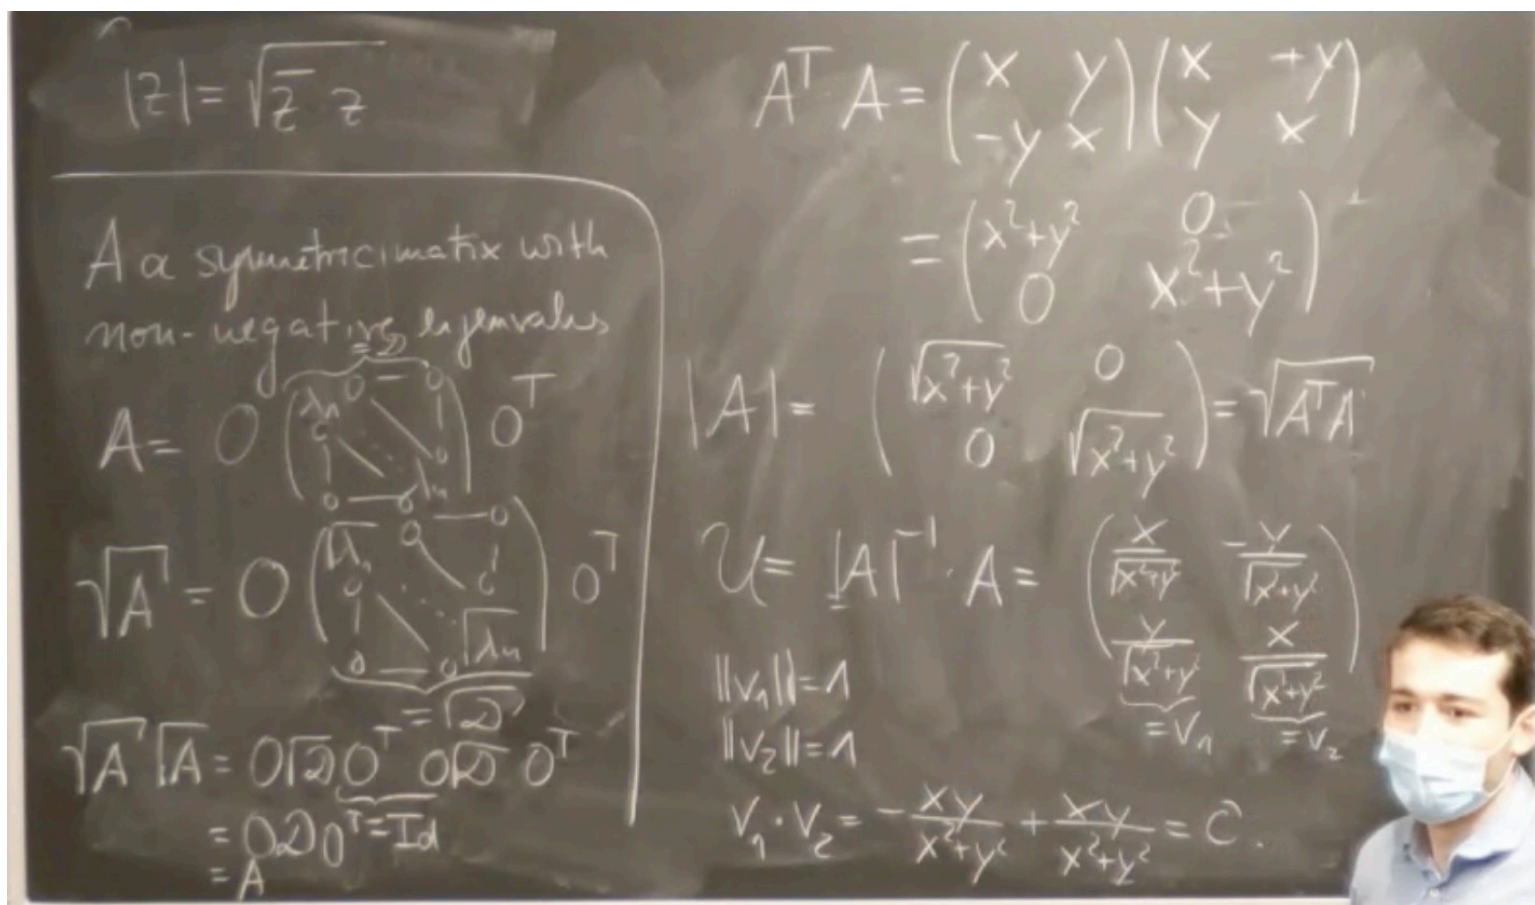 |z| = √ z̄ · z
A a symmetric matix with
non-negative eigenvalues
= D
A = O ( λ₁ 0 — 0
0 0
0 — 0 λₙ ) Oᵀ
√A = O ( √λ₁ 0 — 0
0 0
0 — 0 √λₙ ) Oᵀ
= √D
√A √A = O√D Oᵀ O√D Oᵀ
= O D Oᵀ = Id
= A
Aᵀ · A = ( x y
-y x ) ( x +y
y x )
= ( x²+y² 0
0 x²+y² )
|A| = ( √x²+y² 0
0 √x²+y² ) = √AᵀA
U = |A|⁻¹ · A = ( x/√x²+y² -y/√x²+y²
y/√x²+y² x/√x²+y² )
= v₁ = v₂
||v₁|| = 1
||v₂|| = 1
v₁ · v₂ = - xy/x²+y² + xy/x²+y² = 0.